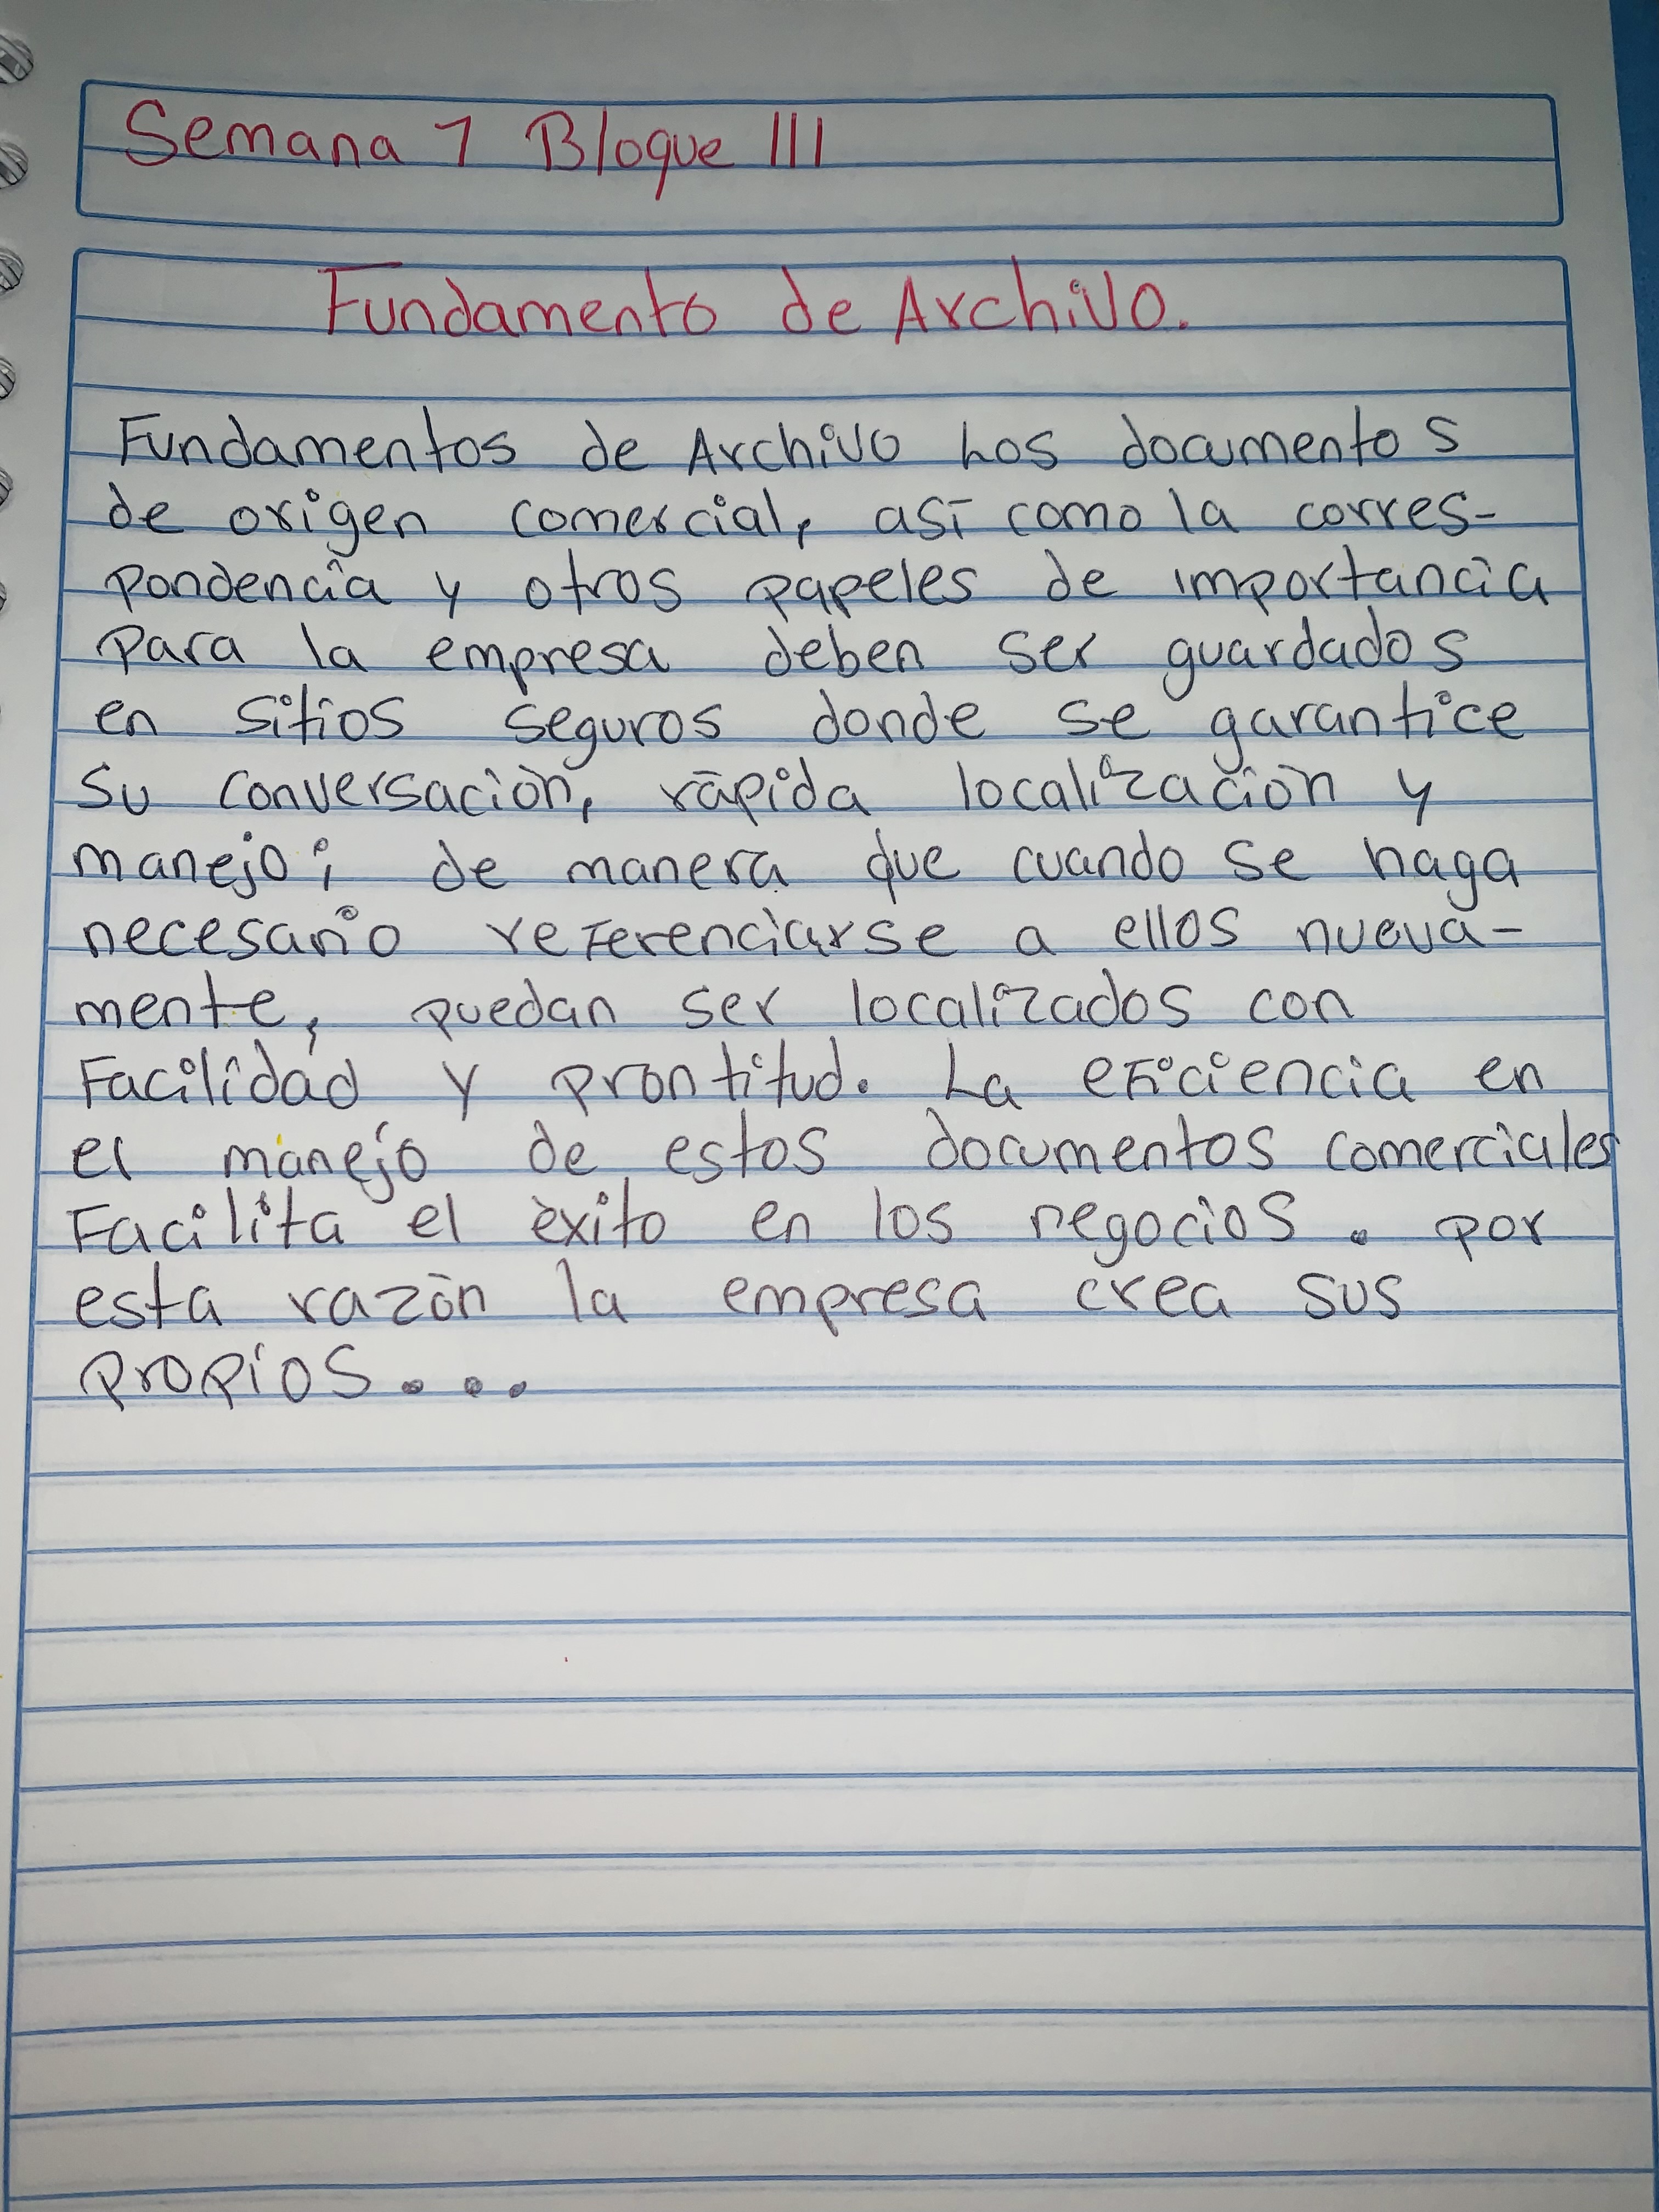 Semana 1 Bloque III
Fundamento de Archivo.
Fundamentos de Archivo Los documentos
de origen comercial, así como la corres-
pondencia y otros papeles de importancia
para la empresa deben ser guardados
en sitios seguros donde se garantice
su conversación, rápida localización y
manejo; de manera que cuando se haga
necesario referenciarse a ellos nueva-
mente, puedan ser localizados con
Facilidad y prontitud. La eficiencia en
el manejo de estos documentos comerciales
Facilita el èxito en los negocios. por
esta razón la empresa crea sus
propios...